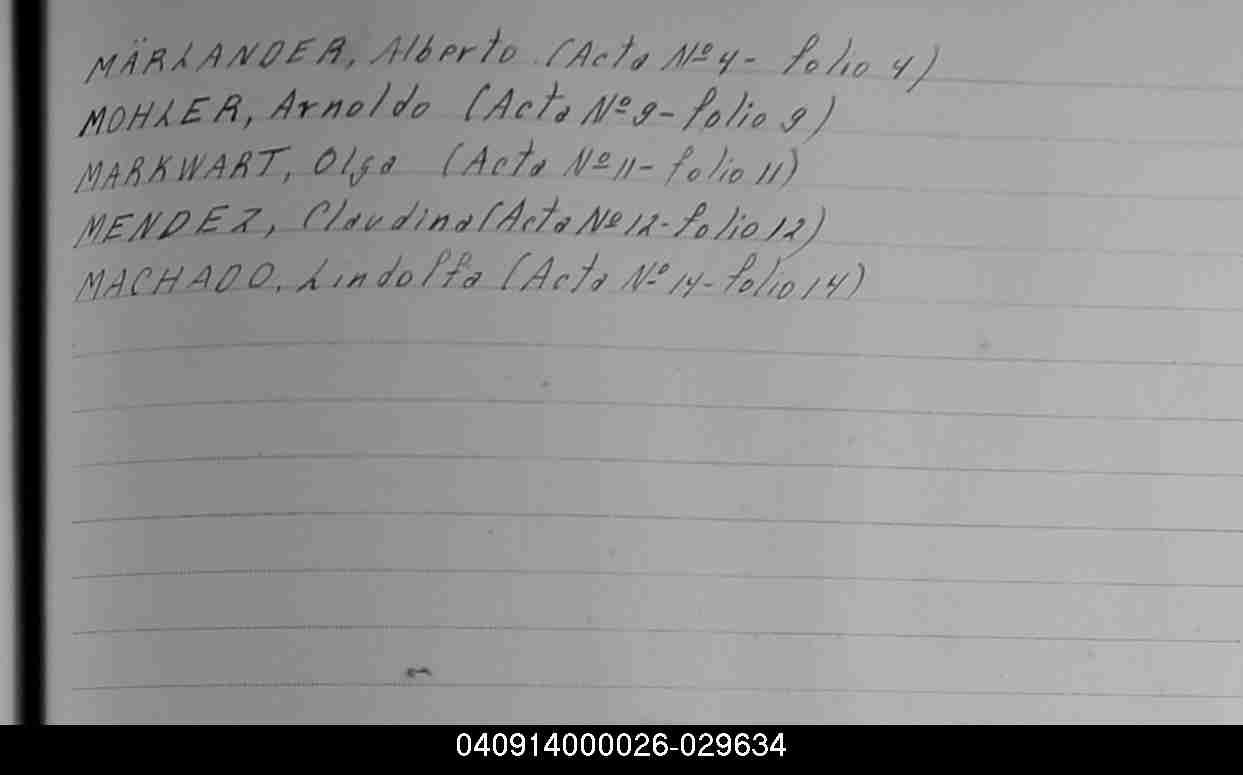 MÄRLANDER, Alberto (Acta Nº 4 - folio 4)
MOHLER, Arnoldo (Acta Nº 9 - folio 9)
MARKWART, Olga (Acta Nº 11 - folio 11)
MENDEZ, Claudina (Acta Nº 12 - folio 12)
MACHADO, Lindolfa (Acta Nº 14 - folio 14)
040914000026-029634